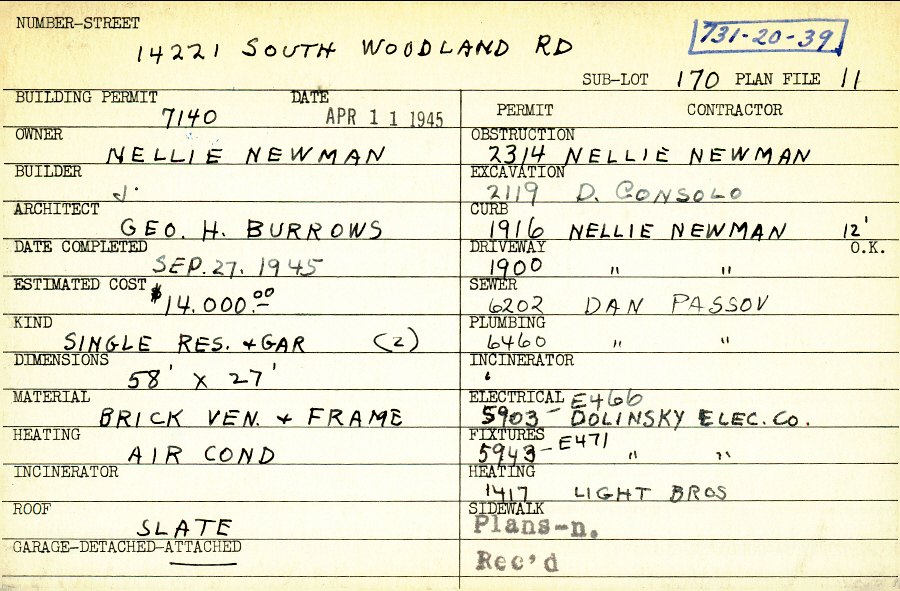 NUMBER-STREET
14221 SOUTH WOODLAND RD
731-20-39
SUB-LOT 170 PLAN FILE 11
BUILDING PERMIT DATE
7140 APR 11 1945
OWNER
NELLIE NEWMAN
BUILDER
ARCHITECT
GEO. H. BURROWS
DATE COMPLETED
SEP. 27. 1945
ESTIMATED COST $14.000.00
KIND
SINGLE RES. + GAR (2)
DIMENSIONS
58' X 27'
MATERIAL
BRICK VEN. + FRAME
HEATING
AIR COND
INCINERATOR
ROOF
SLATE
GARAGE-DETACHED-ATTACHED
PERMIT CONTRACTOR
OBSTRUCTION
2314 NELLIE NEWMAN
EXCAVATION
2119 D. CONSOLO
CURB
1916 NELLIE NEWMAN 12'
DRIVEWAY O.K.
1900 " "
SEWER
6202 DAN PASSOV
PLUMBING
6460 " "
INCINERATOR
ELECTRICAL E466
5903- DOLINSKY ELEC. CO.
FIXTURES
5943-E471 " "
HEATING
1417 LIGHT BROS
SIDEWALK
Plans-n.
Rec'd